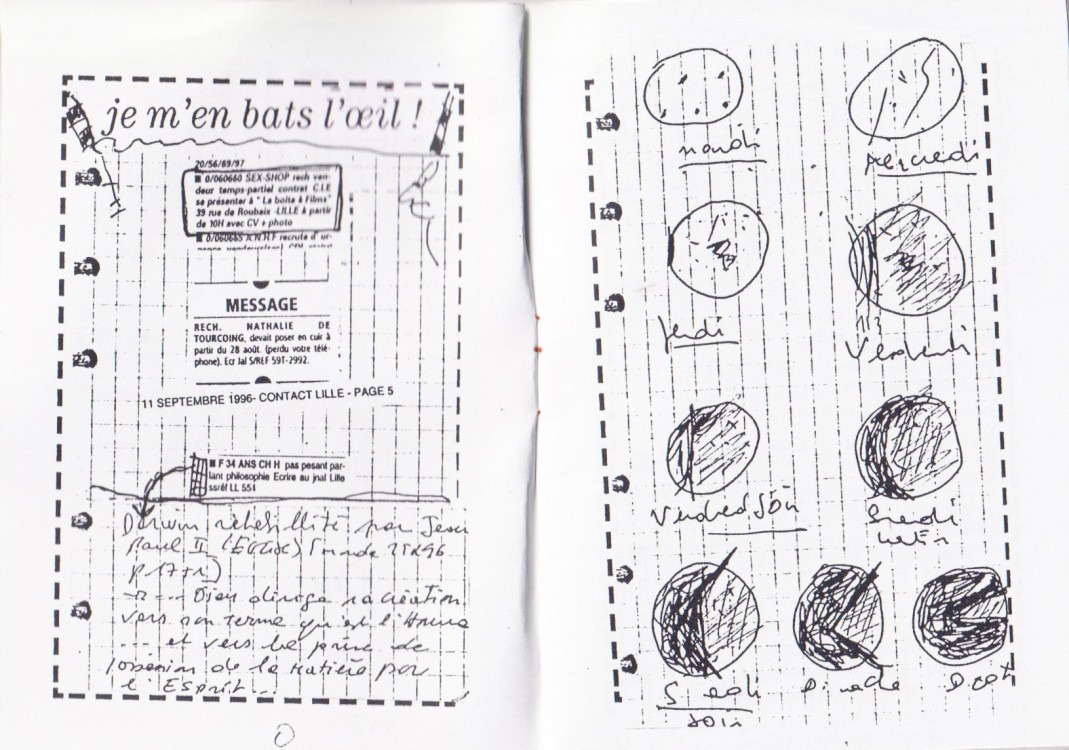 je m'en bats l'œil !
20/56/69/97
■ 0/060660 SEX-SHOP rech ven-
deur temps-partiel contrat C.I.E
se présenter à " La boite à Films"
39 rue de Roubaix -LILLE à partir
de 10H avec CV + photo
■ 0/060665 A.N.H.F recrute d'ur-
MESSAGE
RECH. NATHALIE DE
TOURCOING, devait poser en cuir à
partir du 28 août. (perdu votre télé-
phone). Ecr Jal S/REF 59T-2992.
11 SEPTEMBRE 1996- CONTACT LILLE - PAGE 5
■ F 34 ANS CH H pas pesant par-
lant philosophie Ecrire au jnal Lille
ssréf LL 554
Darwin réhabilité par Jean
Paul II (EGLISE)
Dieu dirige sa création
vers son terme qu'est l'Homme
... et vers la prise de
possession de la Matière par
l'Esprit...
mardi
Mercredi
Jeudi
Vendredi
Vendredi Soir
Samedi
matin
Samedi
soir
Dimanche